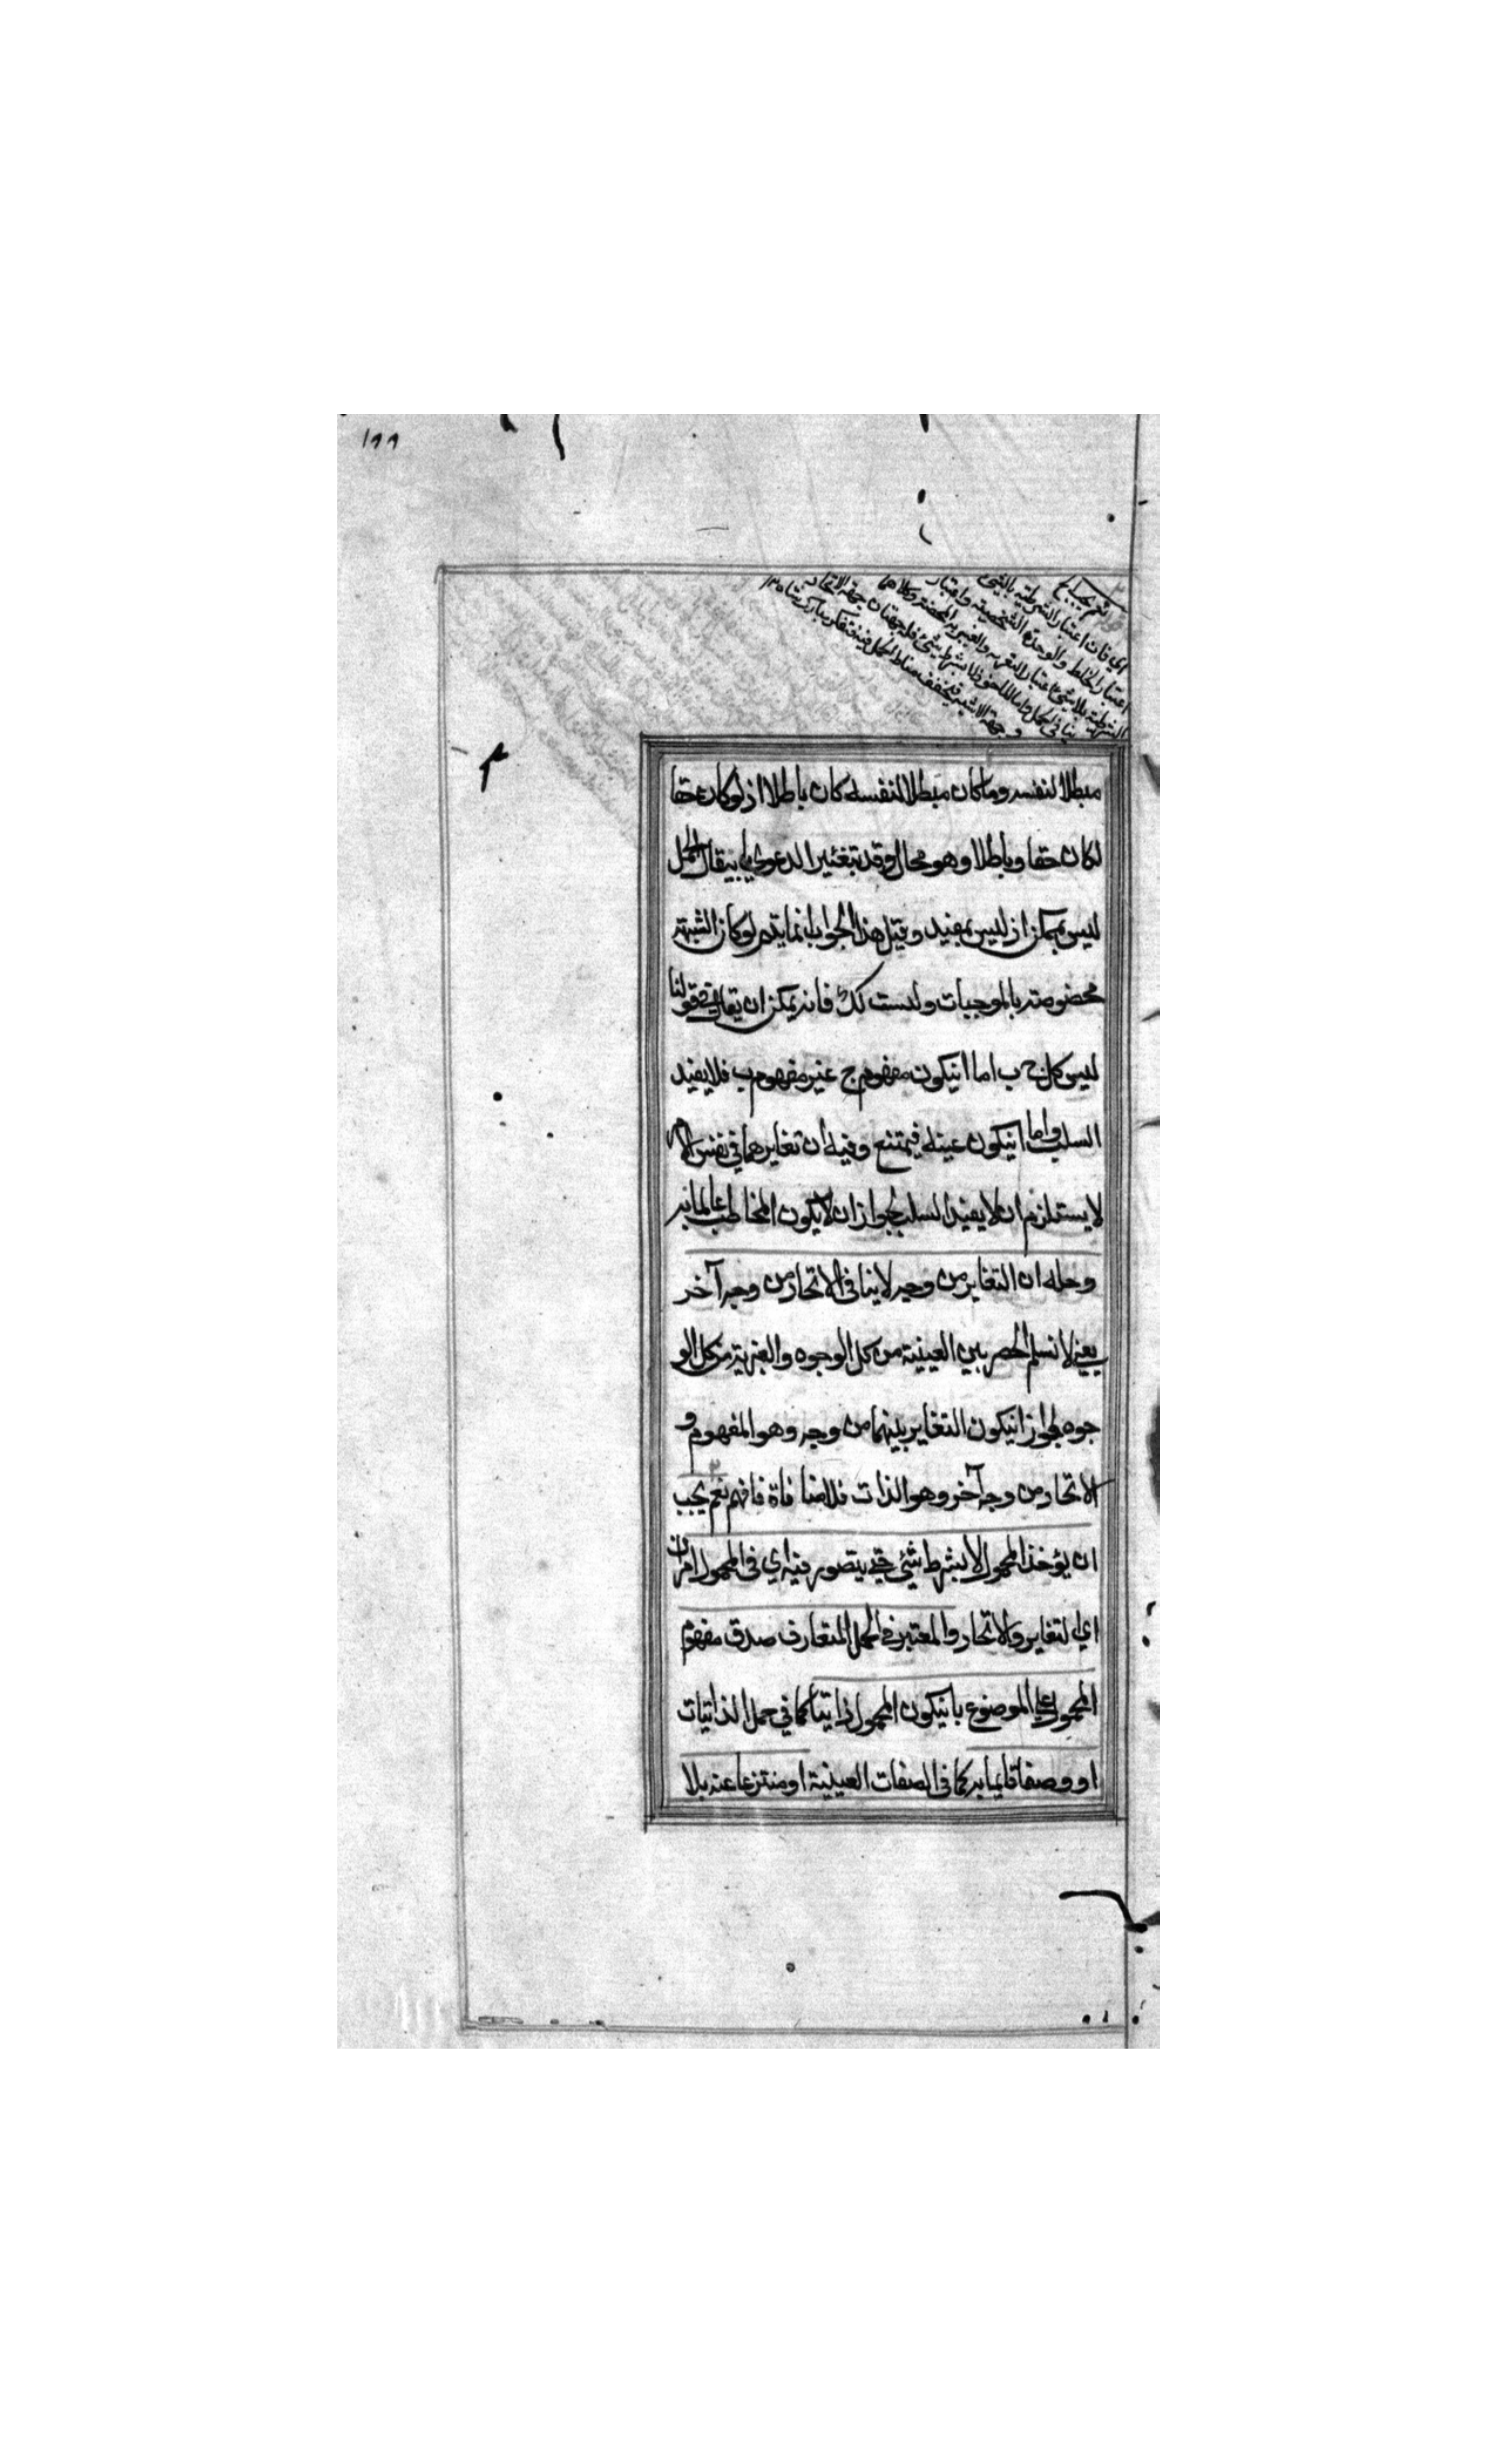 ١٩٩
نعم يجب الخ
اي فان اعتبار الشرطية بالشئ
اعتبار الخلط والوحدة الشخصية واعتبار
الشرطية بلا شئ اعتبار التعرية والغيرية المحضة وكلاهما
ينافي الحمل واما الماخوذ لا بشرط شئ فله جهتان جهة الاتحاد
وجهة الاثنينية فيتحقق مناط الحمل فيه فتفكر مباركشاه ١٢
مبطلا لنفسه وما كان مبطلا لنفسه كان باطلا اذ لو كان حقا
لكان حقا وباطلا وهو محال وقد تغير الدعوى بان يقال الحمل
ليس بممكن اذ ليس بمفيد وقيل هذا الجواب انما يتم لو كان الشبهة
مخصوصة بالموجبات وليست كك فانه يمكن ان يقال في قولنا
ليس كل ج ب اما انيكون مفهوم ج غير مفهوم ب فلا يفيد
السلب واما انيكون عينه فيمتنع وفيه ان تغايرهما في نفس الامر
لا يستلزم ان لا يفيد السلب لجواز ان لا يكون المخاطب عالما به
وحله ان التغاير من وجه لا ينافي الاتحاد من وجه آخر
يعني لا نسلم الحصر بين العينية من كل الوجوه والغيرية من كل الو
جوه لجواز انيكون التغاير بينهما من وجه وهو المفهوم و
الاتحاد من وجه آخر وهو الذات فلا منافاة فافهم نعم يجب
ان يؤخذ المحمول لا بشرط شئ حتى يتصور فيه اي في المحمول امران
اي التغاير والاتحاد والمعتبر في الحمل المتعارف صدق مفهوم
المحمول على الموضوع بانيكون المحمول ذاتيا كما في حمل الذاتيات
او وصفا قايما به كما في الصفات العينية او منتزعا عنه بلا